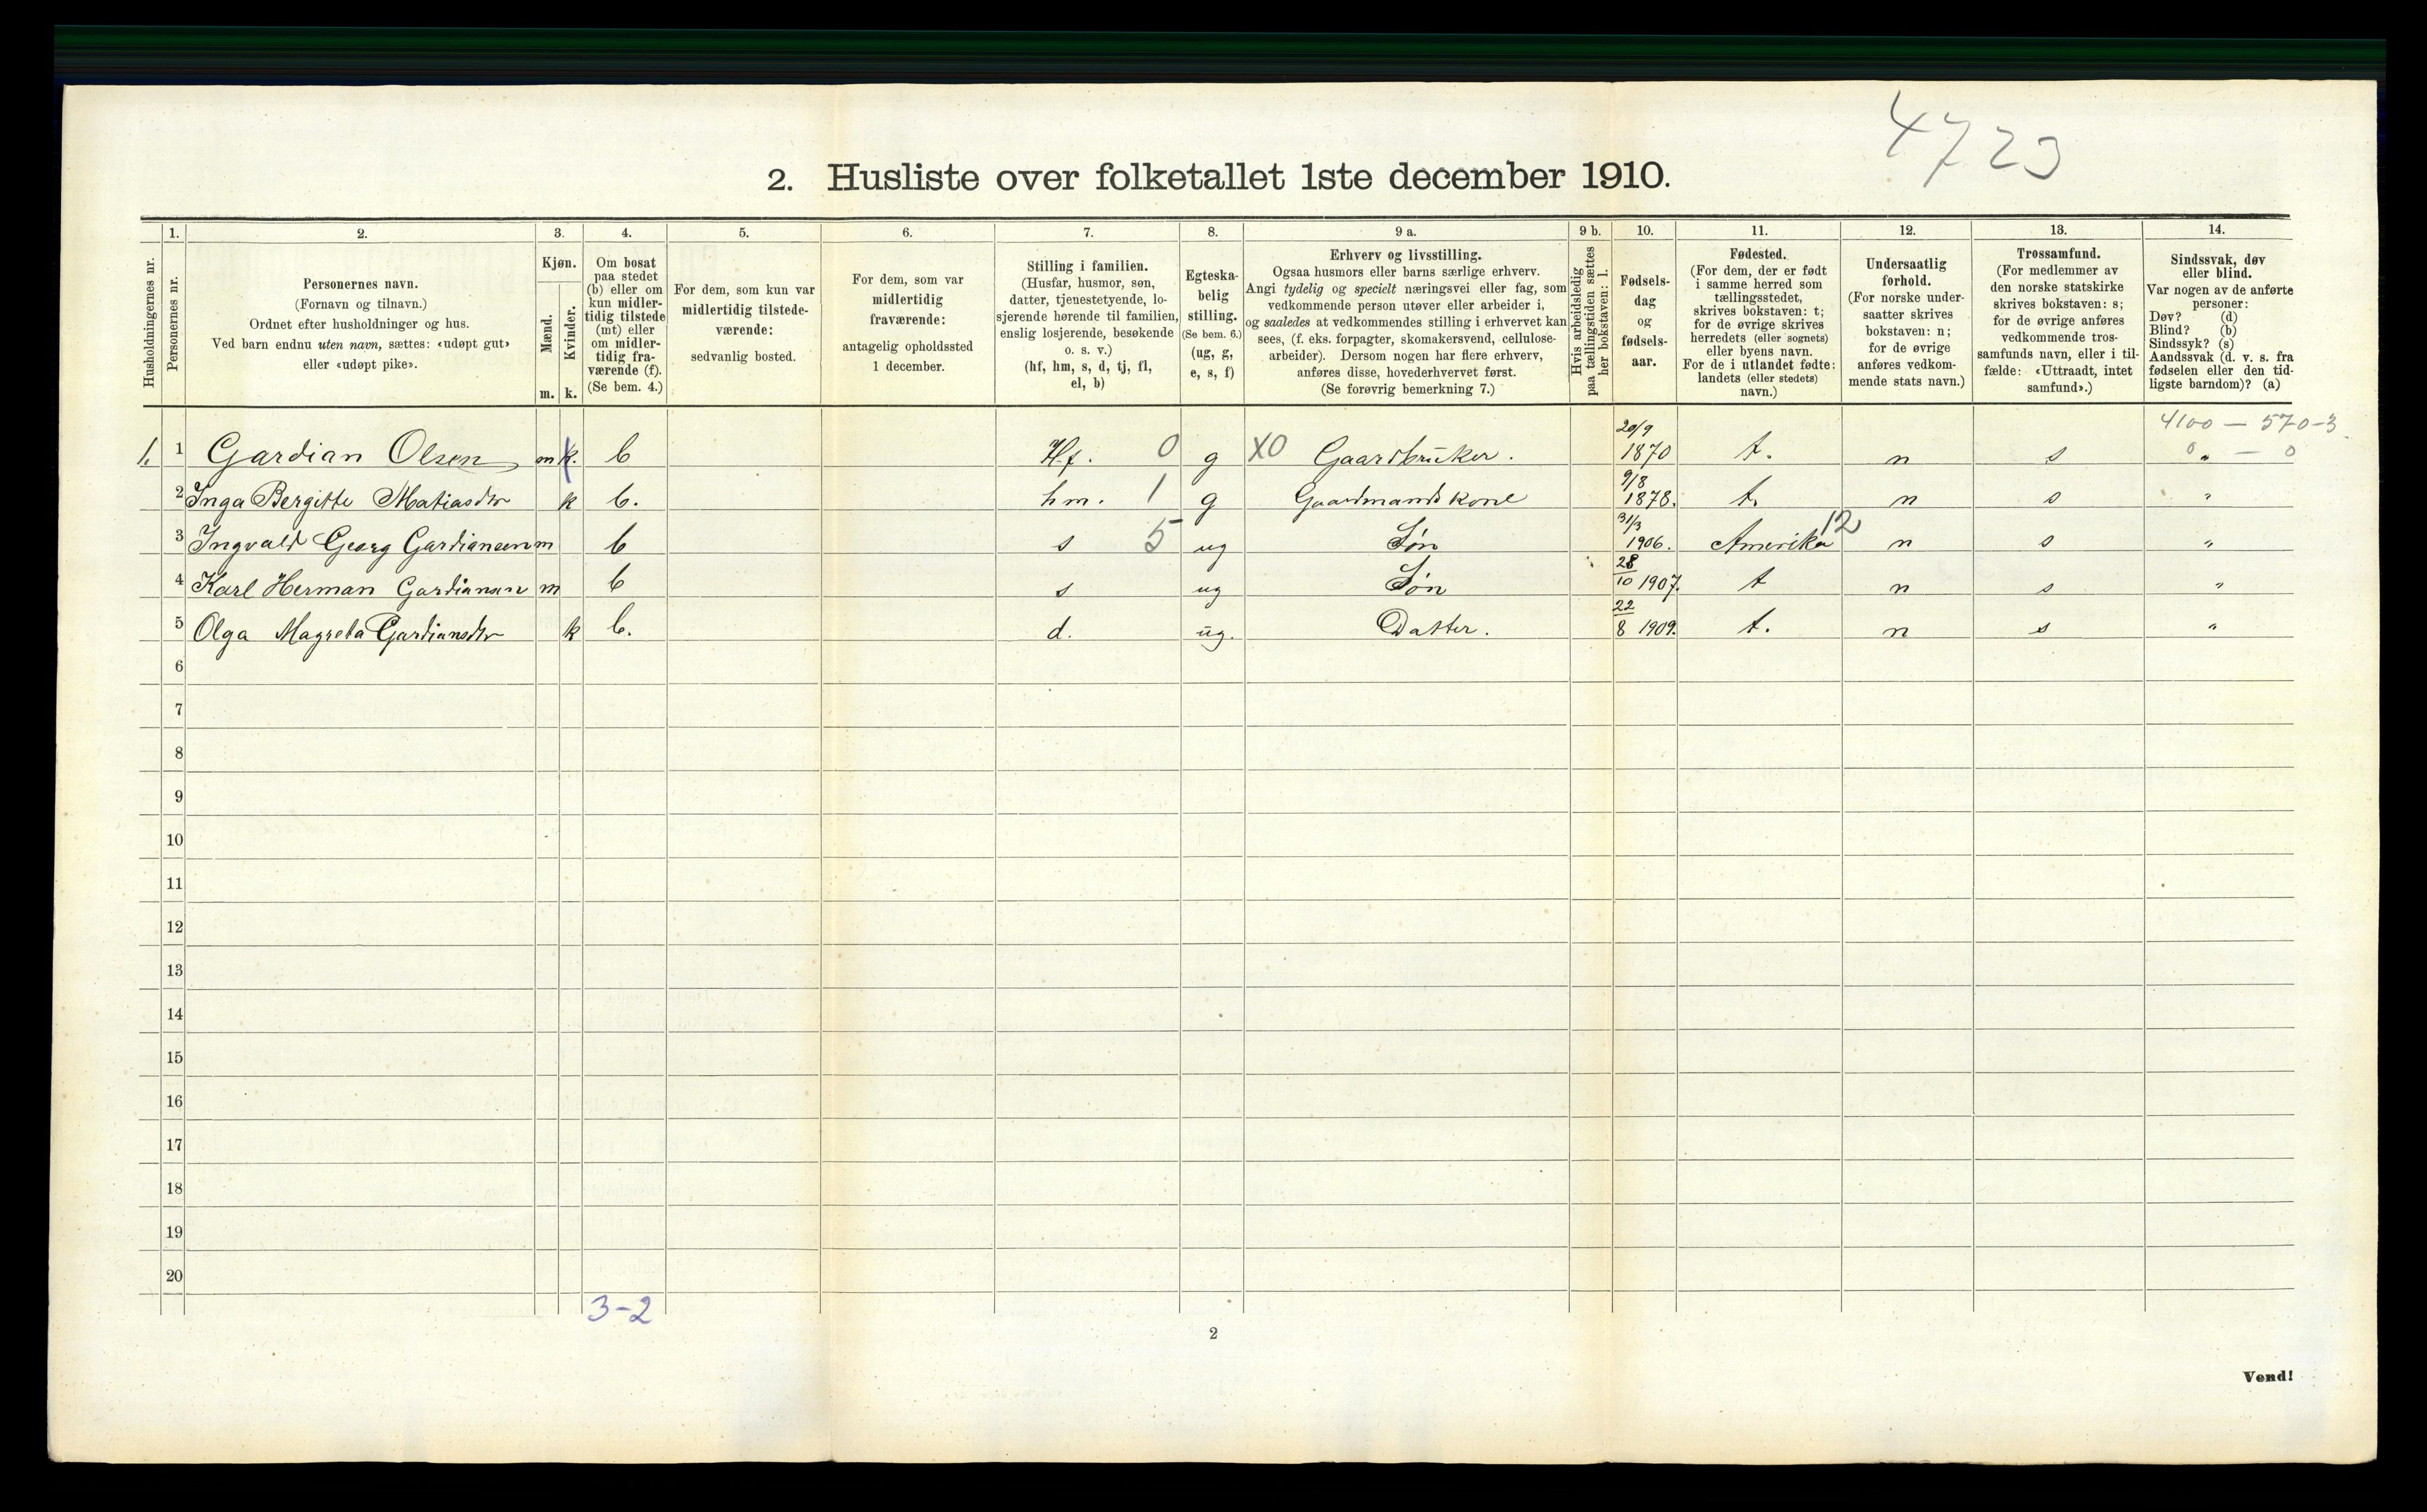 4723
2. Husliste over folketallet 1ste december 1910.
Husholdningernes nr.
1.
Personernes nr.
2.
Personernes navn.
(Fornavn og tilnavn.)
Ordnet efter husholdninger og hus.
Ved barn endnu uten navn, sættes: «udøpt gut»
eller «udøpt pike».
3.
Kjøn.
Mænd.
Kvinder.
m. k.
4.
Om bosat
paa stedet
(b) eller om
kun midler-
tidig tilstede
(mt) eller
om midler-
tidig fra-
værende (f).
(Se bem. 4.)
5.
For dem, som kun var
midlertidig tilstede-
værende:
sedvanlig bosted.
6.
For dem, som var
midlertidig
fraværende:
antagelig opholdssted
1 december.
7.
Stilling i familien.
(Husfar, husmor, søn,
datter, tjenestetyende, lo-
sjerende hørende til familien,
enslig losjerende, besøkende
o. s. v.)
(hf, hm, s, d, tj, fl,
el, b)
8.
Egteska-
belig
stilling.
(Se bem. 6.)
(ug, g,
e, s, f)
9 a.
Erhverv og livsstilling.
Ogsaa husmors eller barns særlige erhverv.
Angi tydelig og specielt næringsvei eller fag, som
vedkommende person utøver eller arbeider i,
og saaledes at vedkommendes stilling i erhvervet kan
sees, (f. eks. forpagter, skomakersvend, cellulose-
arbeider). Dersom nogen har flere erhverv,
anføres disse, hovederhvervet først.
(Se forøvrig bemerkning 7.)
9 b.
Hvis arbeidsledig
paa tællingstiden sættes
her bokstaven: l.
10.
Fødsels-
dag
og
fødsels-
aar.
11.
Fødested.
(For dem, der er født
i samme herred som
tællingsstedet,
skrives bokstaven: t;
for de øvrige skrives
herredets (eller sognets)
eller byens navn.
For de i utlandet fødte:
landets (eller stedets)
navn.)
12.
Undersaatlig
forhold.
(For norske under-
saatter skrives
bokstaven: n;
for de øvrige
anføres vedkom-
mende stats navn.)
13.
Trossamfund.
(For medlemmer av
den norske statskirke
skrives bokstaven: s;
for de øvrige anføres
vedkommende tros-
samfunds navn, eller i til-
fælde: «Uttraadt, intet
samfund».)
14.
Sindssvak, døv
eller blind.
Var nogen av de anførte
personer:
Døv? (d)
Blind? (b)
Sindssyk? (s)
Aandssvak (d. v. s. fra
fødselen eller den tid-
ligste barndom)? (a)
4100 — 570-3
1. 1 Gardian Olsen m k. b Hf. 0 g X0 Gaardbruker. 20/9 1870 t. n s 0 „ — 0
2 Inga Bergitte Matiasdtr k b. hm. 1 g Gaardmands kone 9/8 1878. t. n s „
3 Ingvald Georg Gardiansen m b s 5 ug Søn 31/3 1906. Amerika 12 n s „
4 Karl Herman Gardiansen m b s ug Søn 28/10 1907. t n s „
5 Olga Magreta Gardiansdtr k b. d. ug. Datter. 22/8 1909. t. n s „
6
7
8
9
10
11
12
13
14
15
16
17
18
19
20
3-2
2
Vend!